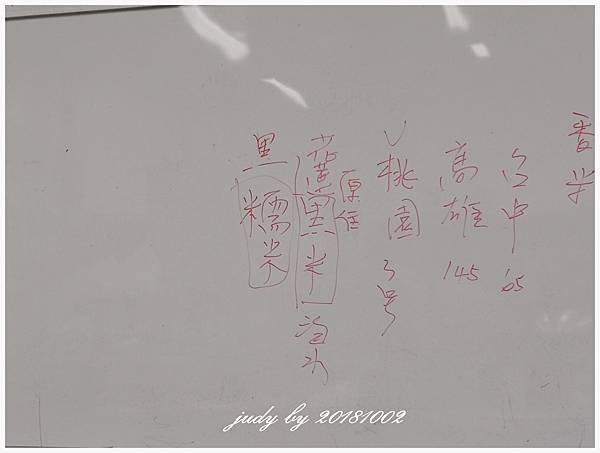 香米
台中
高雄 145
桃園3号
原住
黑米
黑糯米
judy by 20181002